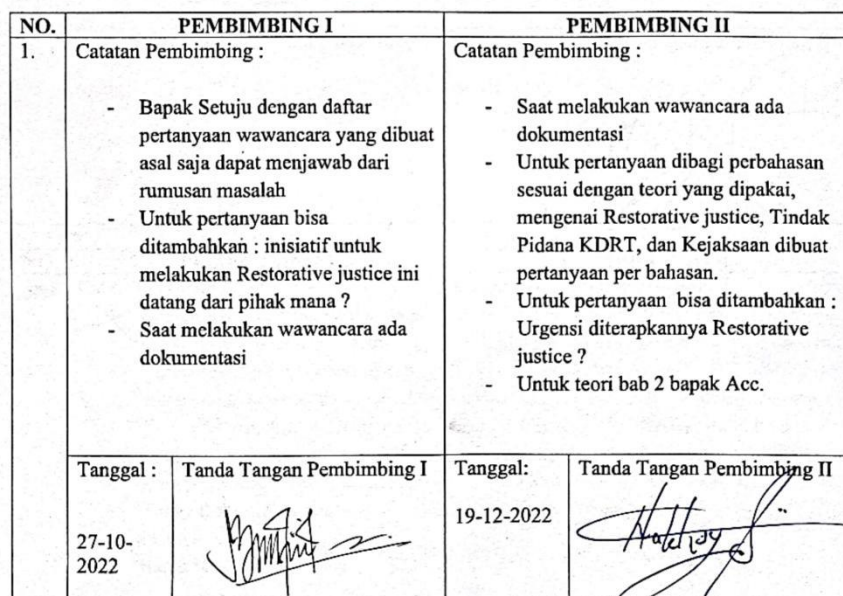 NO.
PEMBIMBING I
PEMBIMBING II
1.
Catatan Pembimbing :
- Bapak Setuju dengan daftar
pertanyaan wawancara yang dibuat
asal saja dapat menjawab dari
rumusan masalah
- Untuk pertanyaan bisa
ditambahkan : inisiatif untuk
melakukan Restorative justice ini
datang dari pihak mana ?
- Saat melakukan wawancara ada
dokumentasi
Catatan Pembimbing :
- Saat melakukan wawancara ada
dokumentasi
- Untuk pertanyaan dibagi perbahasan
sesuai dengan teori yang dipakai,
mengenai Restorative justice, Tindak
Pidana KDRT, dan Kejaksaan dibuat
pertanyaan per bahasan.
- Untuk pertanyaan bisa ditambahkan :
Urgensi diterapkannya Restorative
justice ?
- Untuk teori bab 2 bapak Acc.
Tanggal :
27-10-
2022
Tanda Tangan Pembimbing I
Tanggal:
19-12-2022
Tanda Tangan Pembimbing II